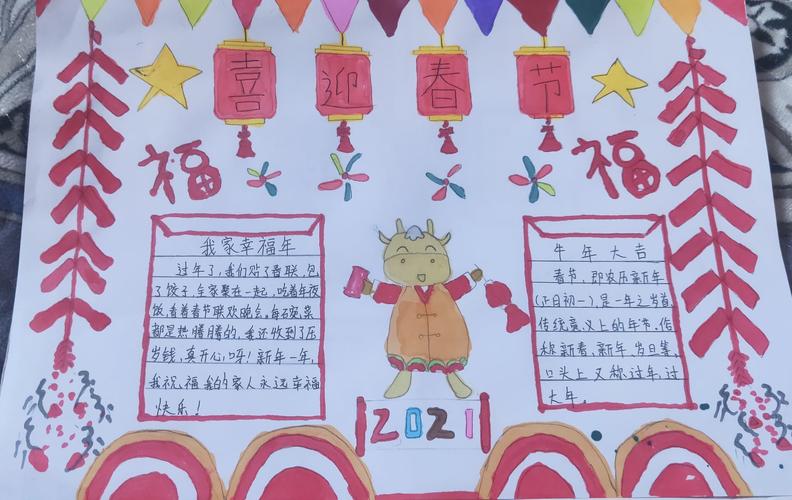 喜迎春节
福
福
我家幸福年
过年了，我们贴了春联，包
了饺子，全家聚在一起，吃着年夜
饭，看着春节联欢晚会。每
都是热腾腾的，我还收到了压
岁钱，真开心呀！新年一年，
我祝福我的家人永远幸福
快乐！
牛年大吉
春节，即农历新年
(正月初一)，是一年之岁首
传统意义上的年节。俗
称新春、新年、岁旦等，
口头上又称过年、过
大年。
2021